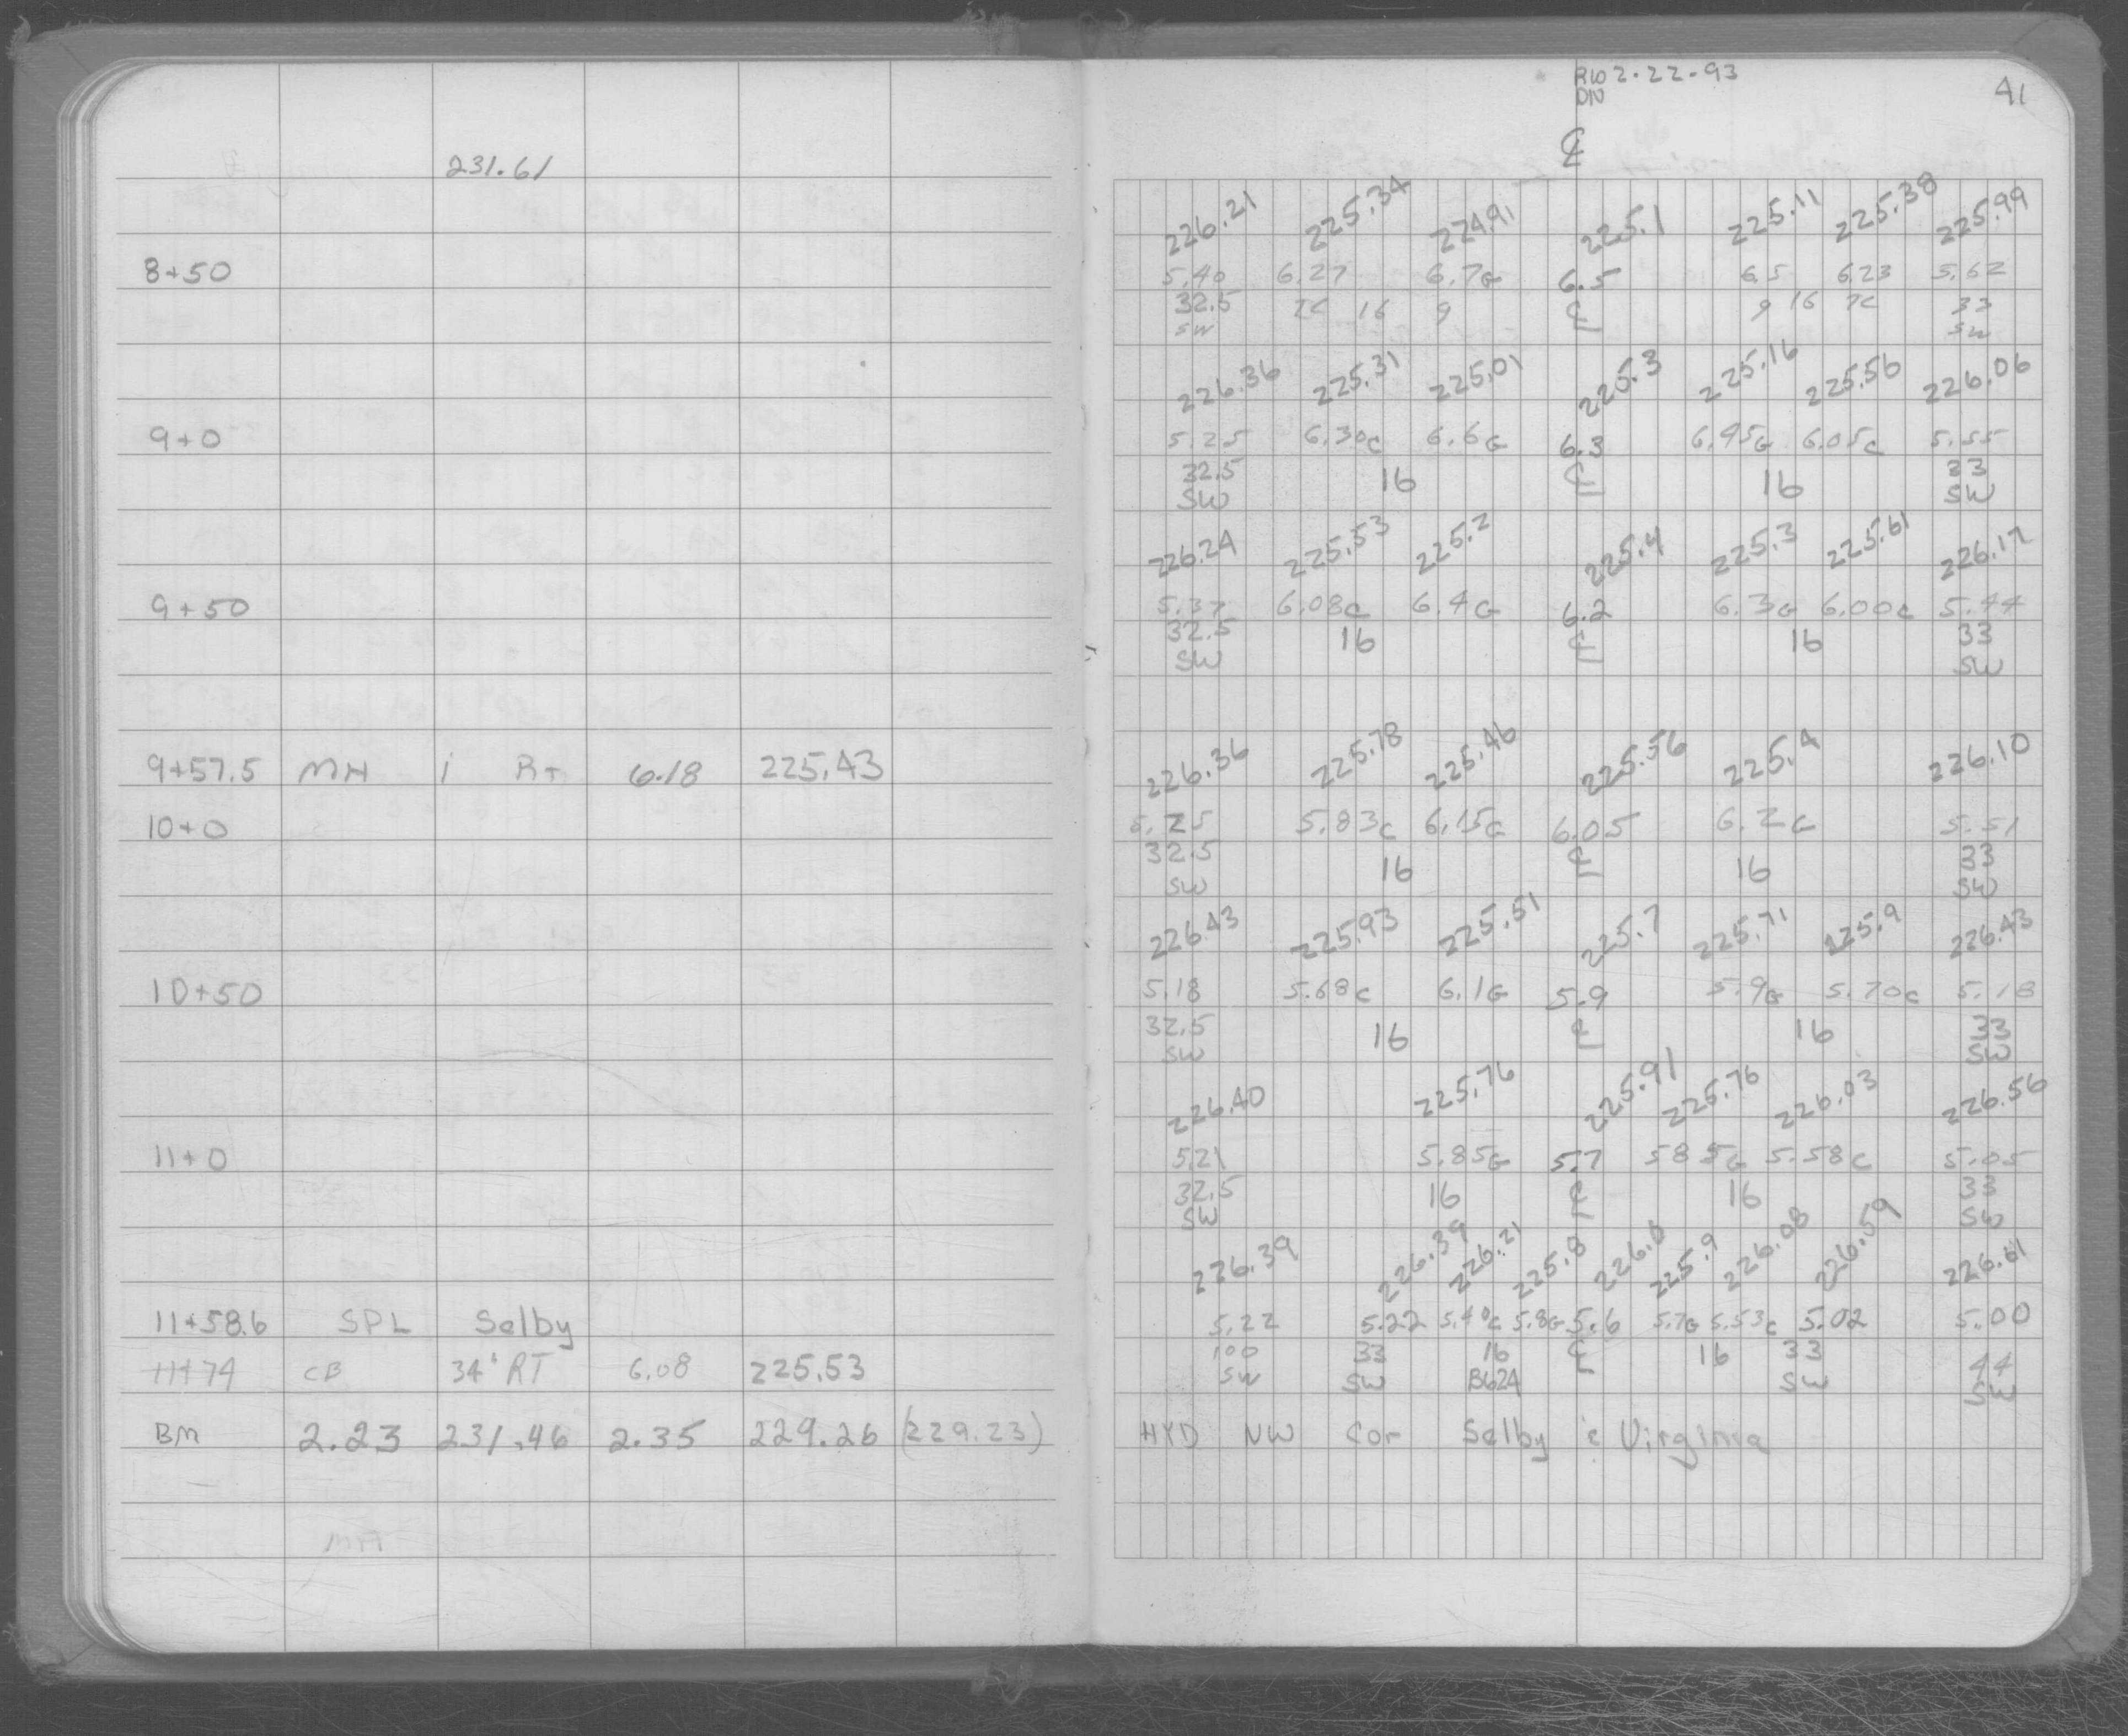 231.61
8+50
9+0
9+50
9+57.5 MH 1 RT 6.18 225.43
10+0
10+50
11+0
11+58.6 SPL Selby
11+74 CB 34' RT 6.08 225.53
BM 2.23 231.46 2.35 229.26 (229.23)
MH
RW 2.22.93
DN
41
℄
226.21 225.34 224.91 225.1 225.11 225.38 225.99
5.40 6.27 6.7G 6.5 6.5 6.23 5.62
32.5 TC 16 9 ℄ 9 16 TC 33
SW SW
226.36 225.31 225.01 225.3 225.16 225.56 226.06
5.25 6.30C 6.6G 6.3 6.45G 6.05C 5.55
32.5 16 ℄ 16 33
SW SW
226.24 225.53 225.2 225.4 225.3 225.61 226.17
5.37 6.08C 6.4G 6.2 6.3G 6.00C 5.44
32.5 16 ℄ 16 33
SW SW
226.36 225.78 225.46 225.56 225.4 226.10
5.25 5.83C 6.15G 6.05 6.2G 5.51
32.5 16 ℄ 16 33
SW SW
226.43 225.93 225.51 225.7 225.71 225.9 226.43
5.18 5.68C 6.1G 5.9 5.9G 5.70C 5.18
32.5 16 ℄ 16 33
SW SW
226.40 225.76 225.91 225.76 226.03 226.56
5.21 5.85G 5.7 5.85G 5.58C 5.05
32.5 16 ℄ 16 33
SW SW
226.39 226.39 226.21 225.8 226.0 225.9 226.08 226.59 226.61
5.22 5.22 5.40C 5.8G 5.6 5.7G 5.53C 5.02 5.00
100 33 16 ℄ 16 33 44
SW SW B624 SW SW
HYD NW Cor Selby & Virginia